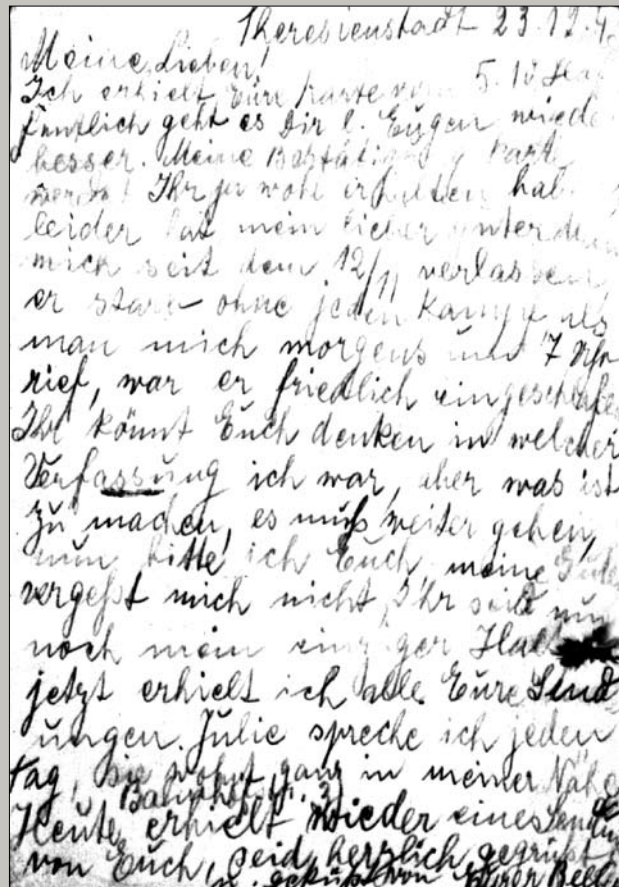 Theresienstadt 23.12.4
Meine Lieben!
Ich erhielt Eure Karte vom 5.10 Hof
fentlich geht es Dir l. Eugen wiede
besser. Meine Bestätigung Kart
werdet Ihr ja wohl erhalten hab
leider hat mein lieber
mich seit dem 12/11 verlassen
er starb ohne jeden Kampf als
man mich morgens um 7 Uhr
rief, war er friedlich eingeschlafen
Ihr könnt Euch denken in welcher
Verfassung ich war, aber was ist
zu machen, es muß weiter gehen,
nun bitte ich Euch, meine
vergeßt mich nicht, Ihr seid nun
noch mein einziger Halt
jetzt erhielt ich alle Eure Send
ungen. Julie spreche ich jeden
tag, sie wohnt ganz in meiner Nähe
Heute erhielt wieder eines
von Euch, seid herzlich gegrüßt
u. geküßt von